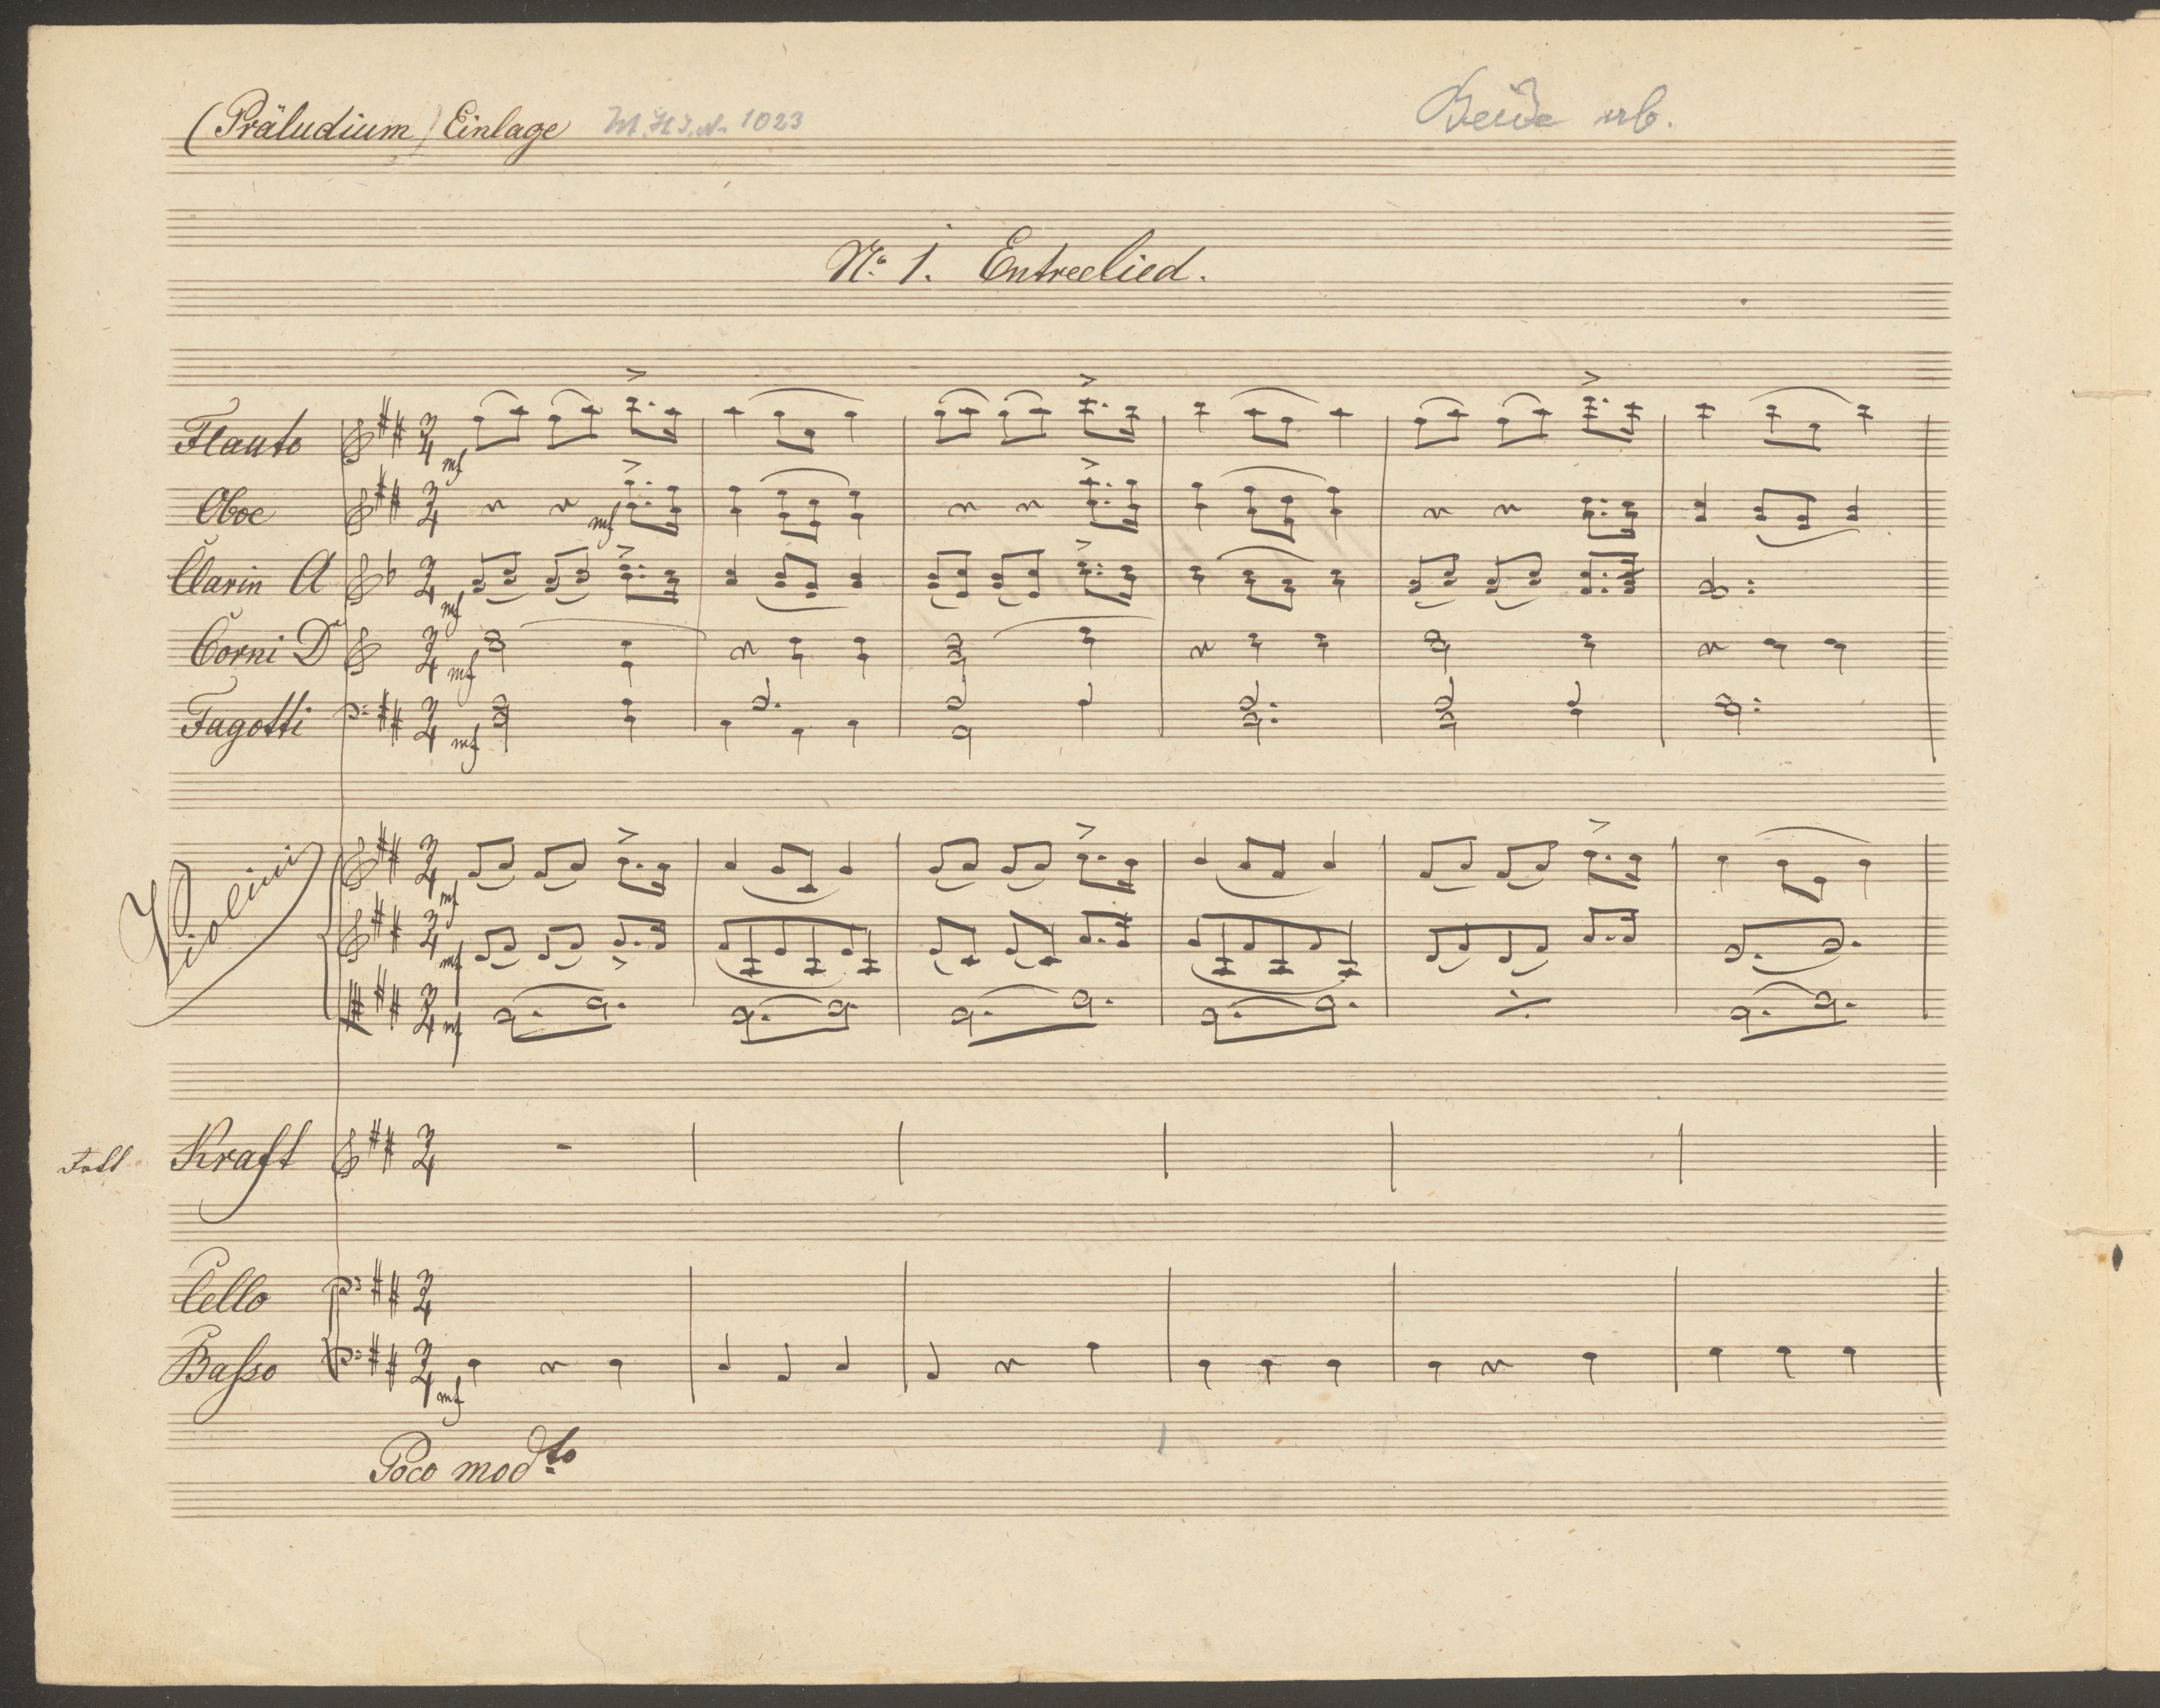 (Präludium) Einlage M.H.I.N. 1023
No. 1. Entreelied.
Flauto mf
Oboe mf
Clarin A mf
Corni D mf
Fagotti mf
Violini mf
mf
mf
Kraft
Cello
Baſso mf
Poco mod.to